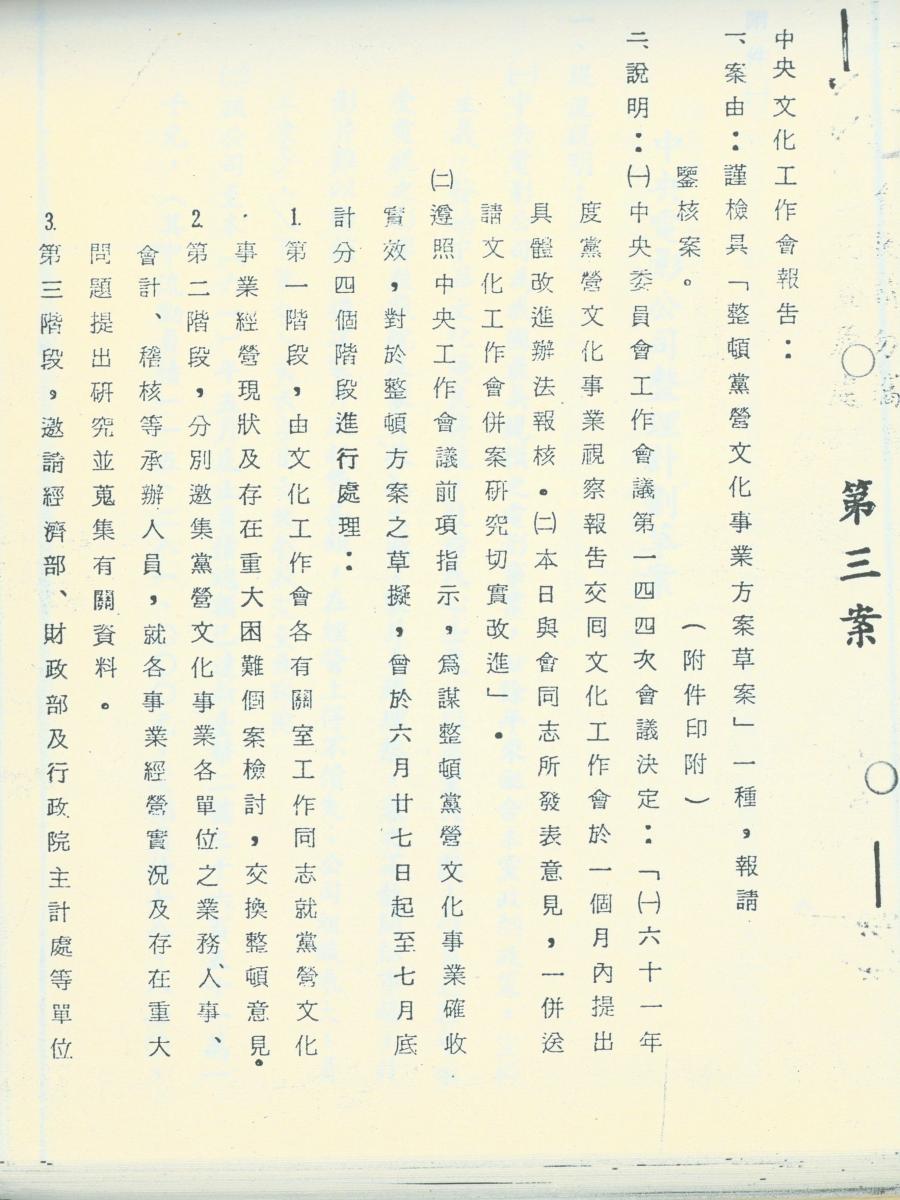 第三案
中央文化工作會報告：
一、案由：謹檢具「整頓黨營文化事業方案草案」一種，報請
鑒核案。（附件印附）
二、說明：㈠中央委員會工作會議第一四四次會議決定：「㈠六十一年
度黨營文化事業視察報告交囘文化工作會於一個月內提出
具體改進辦法報核。㈡本日與會同志所發表意見，一併送
請文化工作會併案硏究切實改進」。
㈡遵照中央工作會議前項指示，爲謀整頓黨營文化事業確收
實效，對於整頓方案之草擬，曾於六月廿七日起至七月底
計分四個階段進行處理：
1.第一階段，由文化工作會各有關室工作同志就黨營文化
事業經營現狀及存在重大困難個案檢討，交換整頓意見。
2.第二階段，分別邀集黨營文化事業各單位之業務、人事、
會計、稽核等承辦人員，就各事業經營實況及存在重大
問題提出硏究並蒐集有關資料。
3.第三階段，邀請經濟部、財政部及行政院主計處等單位